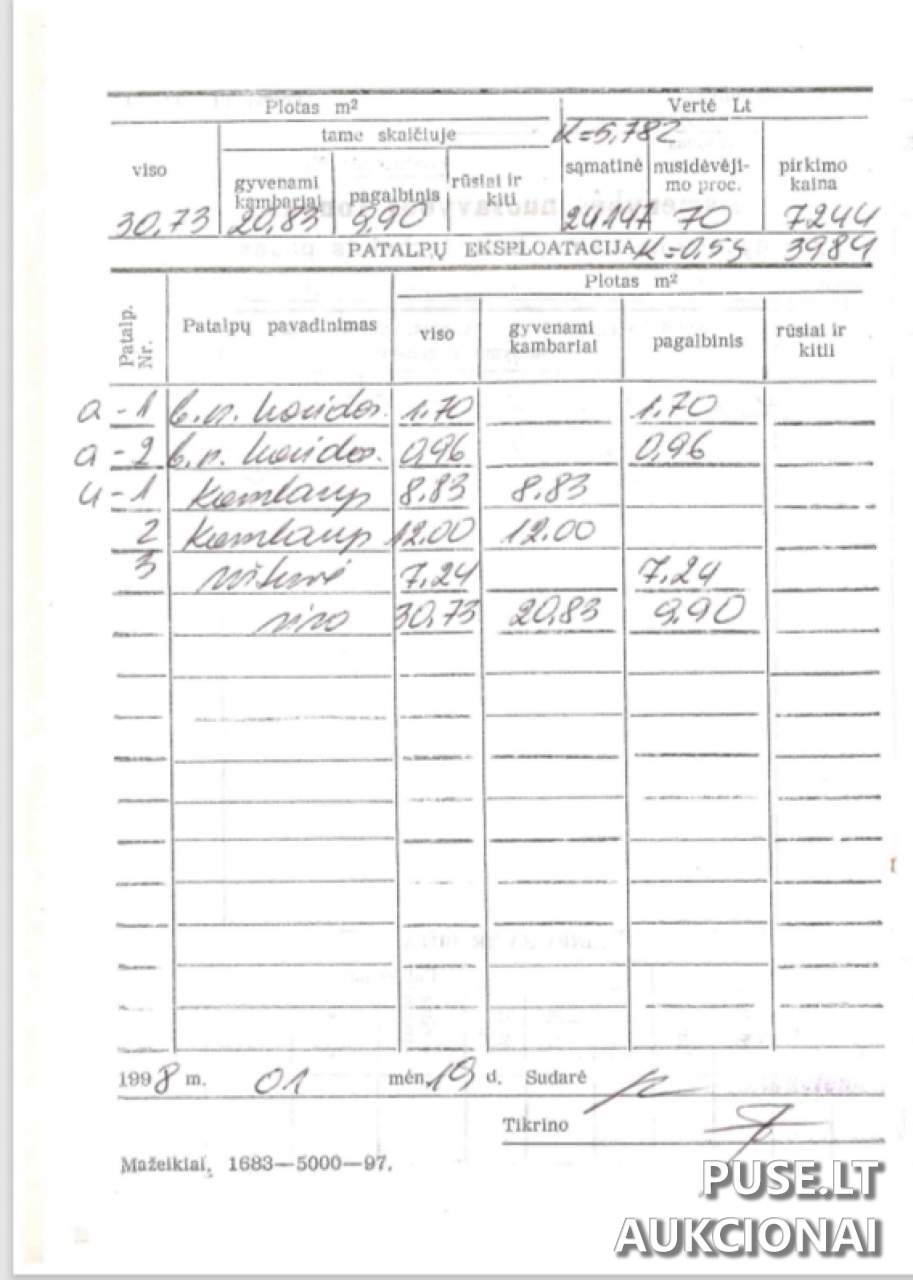 Plotas m² Vertė Lt
tame skaičiuje K=5,782
viso gyvenami kambariai pagalbinis rūsiai ir kiti sąmatinė nusidėvėji- mo proc. pirkimo kaina
30,73 20,83 9,90 24147 70 7244
PATALPŲ EKSPLOATACIJA K=0,55 3984
Plotas m²
Patalp. Nr. Patalpų pavadinimas viso gyvenami kambariai pagalbinis rūsiai ir kitli
a-1 b.n. koridor. 1.70 1.70
a-2 b.n. koridor. 0,96 0,96
4-1 kambarys 8.83 8.83
2 kambarys 12.00 12.00
3 virtuvė 7,24 7,24
viso 30,73 20,83 9,90
1998 m. 01 mėn. 19 d. Sudarė
Tikrino
Mažeikiai, 1683—5000—97.
PUSE.LT
AUKCIONAI